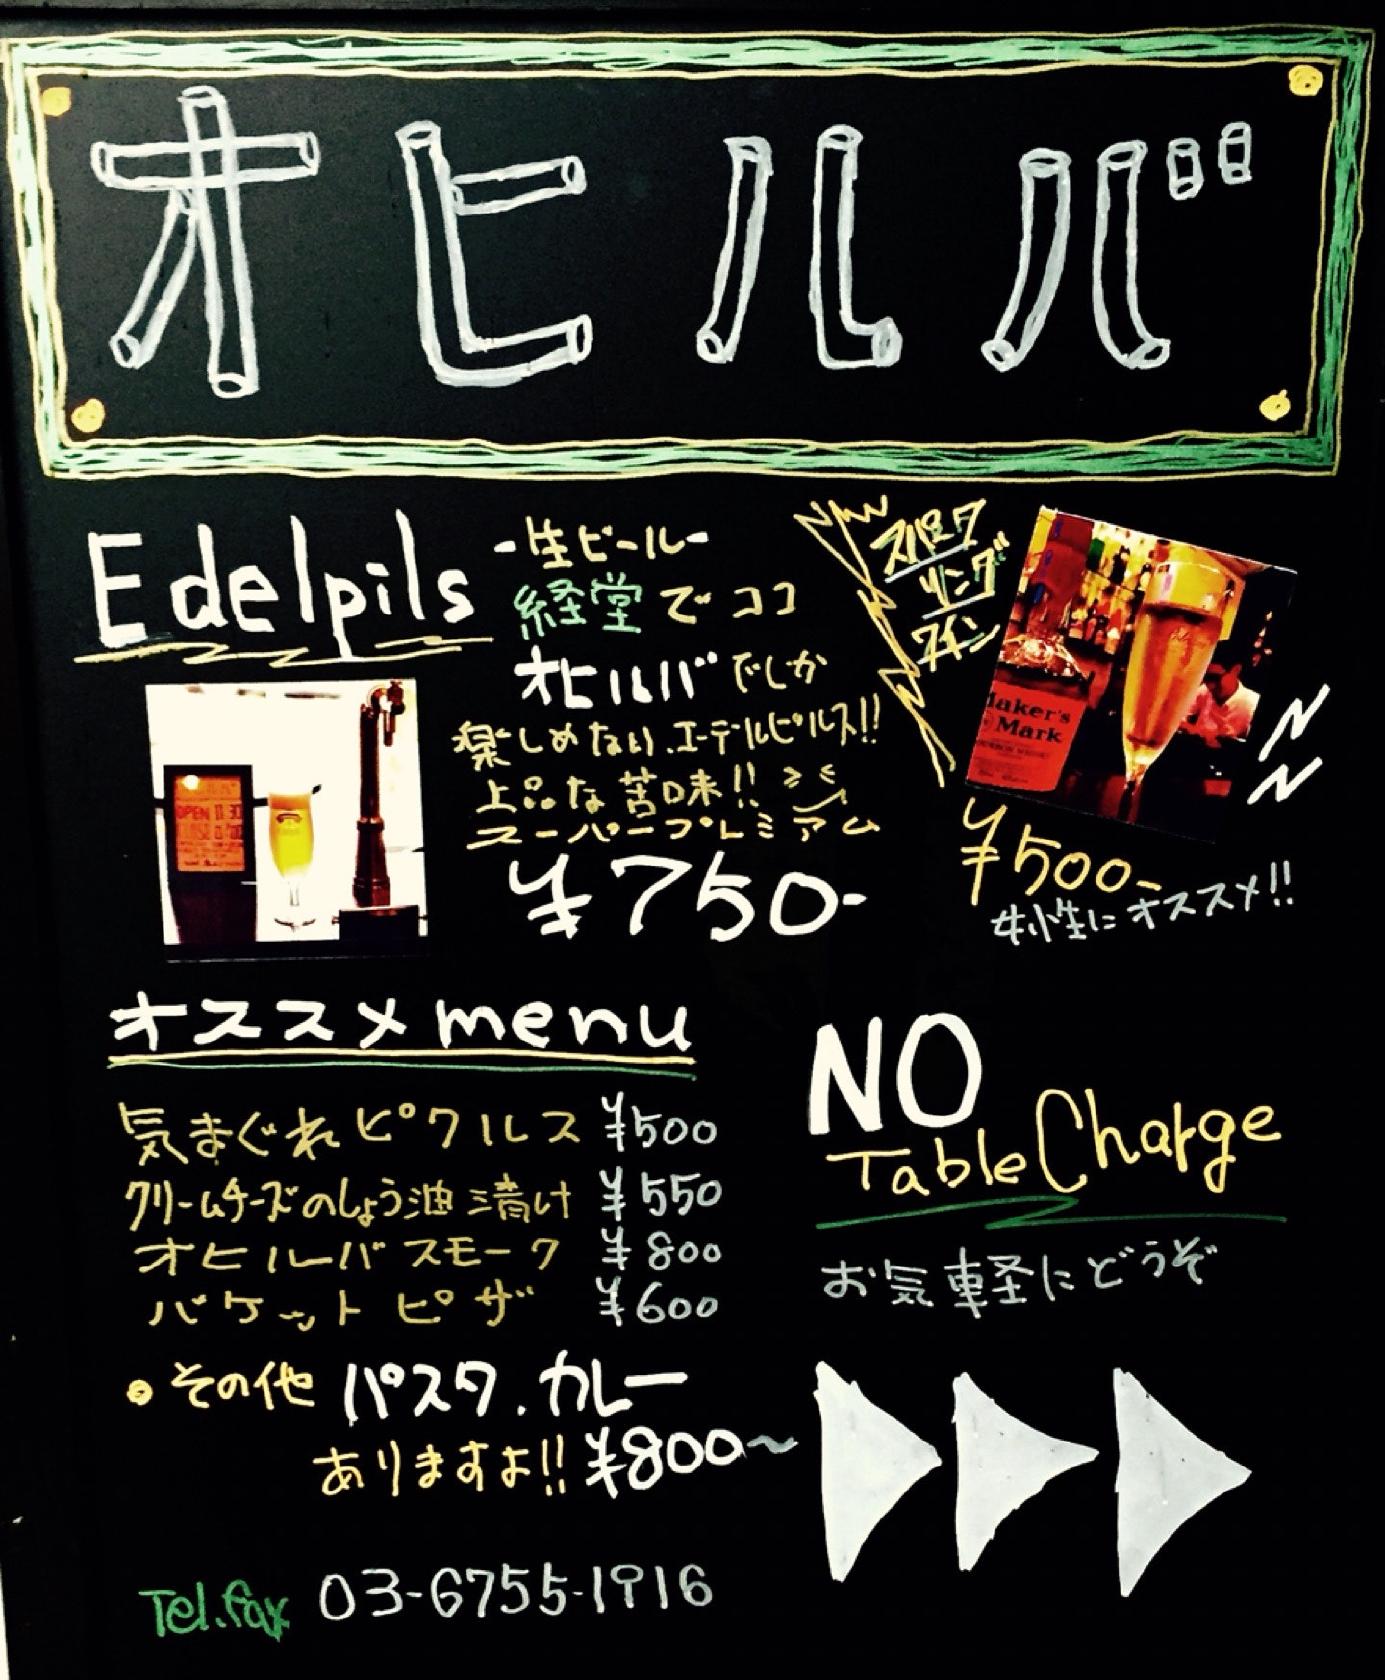 オヒルバ
Edelpils
-生ビール-
経堂でココ
オヒルバでしか
楽しめない.エーデルピルス!!
上品な苦味!!
スーパープレミアム
¥750-
スパーク
リング
ワイン
Maker's
Mark
¥500-
女性にオススメ!!
オススメmenu
気まぐれピクルス ¥500
クリームチーズのしょう油漬け ¥550
オヒルーバスモーク ¥800
バケットピザ ¥600
その他 パスタ.カレー
ありますよ!! ¥800~
NO
Table Charge
お気軽にどうぞ
Tel.fax 03-6755-1916